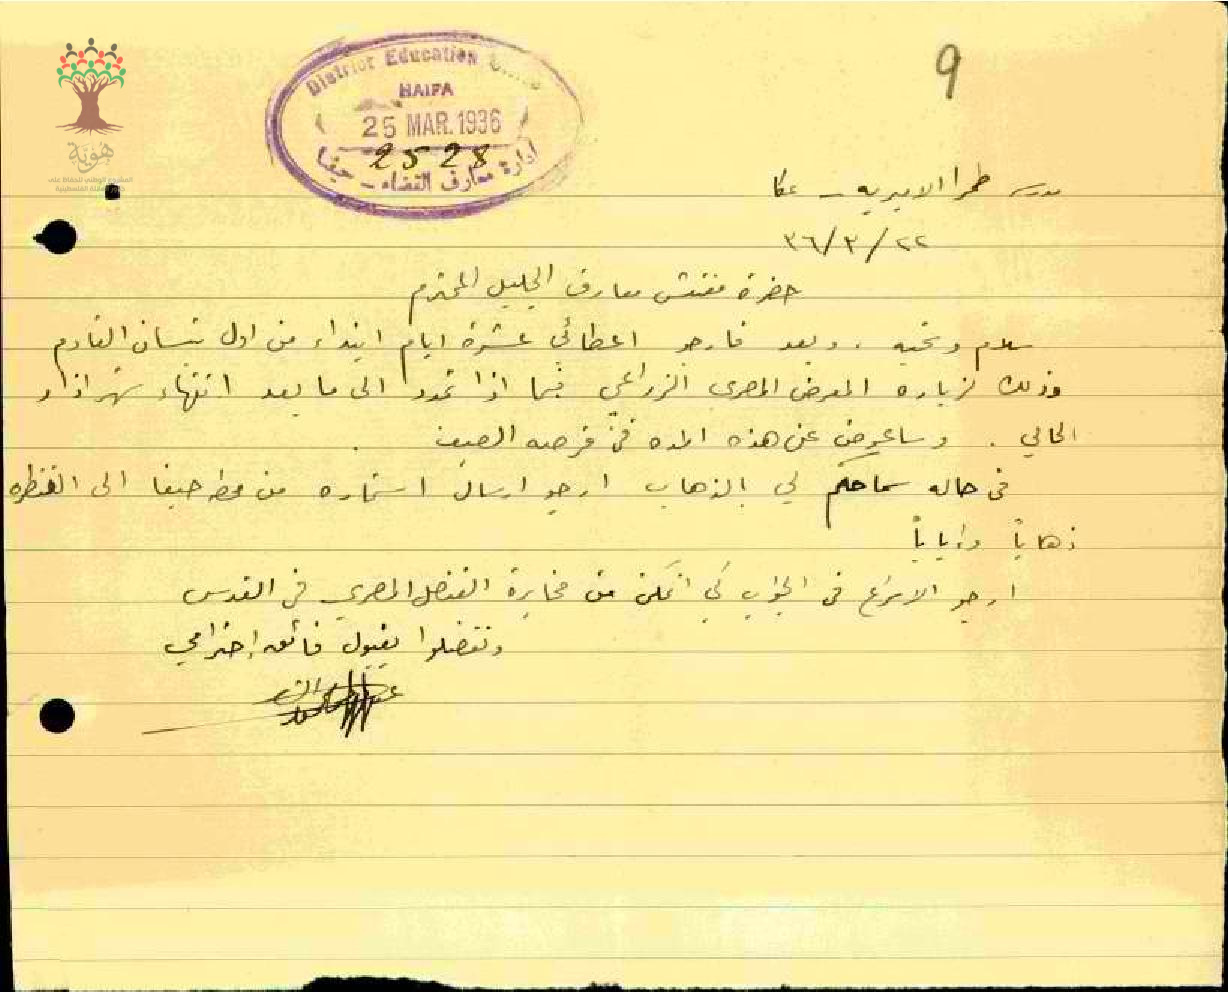 9
District Education Office
HAIFA
25 MAR. 1936
2528
ادارة معارف القضاء - حيفا
هوية
المشروع الوطني للحفاظ على
مدرسة طمرا الاميريه - عكا
٢٢/٣/٣٦
حضرة مفتش معارف الجليل المحترم
سلام وتحيه . وبعد فارجو اعطائي عشرة ايام ابتداء من اول نيسان القادم
وذلك لزيارة المعرض المصري الزراعي فيما اذا تمدد الى ما بعد انتهاء شهر اذار
الحالي . وساعوض عن هذه المده في فرصه الصيف .
في حاله سماحكم لي بالذهاب ارجو ارسال استماره من محطه حيفا الى القنطره
ذهاباً واياباً
ارجو الاسراع في الجواب كي اتمكن من مخابرة القنصل المصري في القدس
وتفضلوا بقبول فائق إحترامي